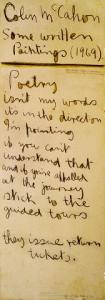 Colin McCahon
Some written
Paintings (1969).
Poetry
isn't my words
its in the direction
I'm pointing
if you can't
understand that
and if you're appalled
at the journey
stick to the
guided tours
they issue return
tickets.